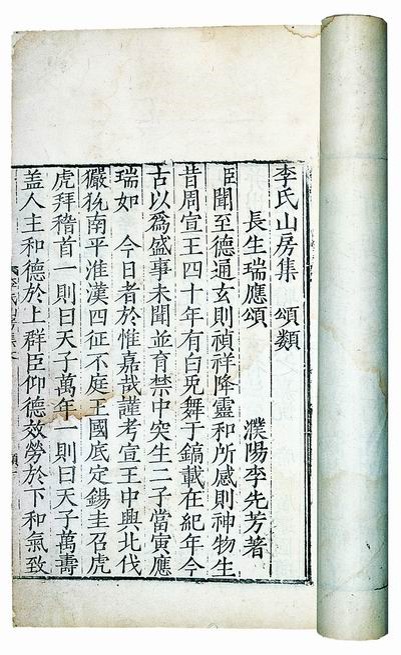 李氏山房集　頌類
長生瑞應頌　濮陽李先芳著
臣聞至德通玄則禎祥降靈和所感則神物生
昔周宣王四十年有白兎舞于鎬載在紀年今
古以爲盛事未聞並育禁中突生二子當寅應
瑞如　今日者於惟嘉哉謹考宣王中興北伐
玁狁南平淮漢四征不庭王國底定錫圭召虎
虎拜稽首一則曰天子萬年一則曰天子萬壽
盖人主和德於上群臣仰德效勞於下和氣致